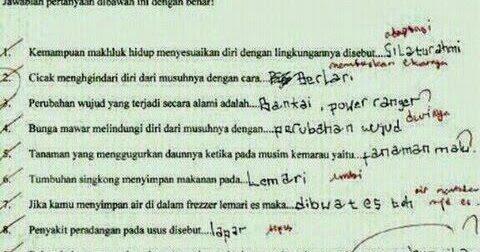 Jawablah pertanyaan dibawah ini dengan benar!
adaptasi
1. Kemampuan makhluk hidup menyesuaikan diri dengan lingkungannya disebut....Silaturahmi
memutuskan ekornya
2. Cicak menghindari diri dari musuhnya dengan cara.... Berlari
3. Perubahan wujud yang terjadi secara alami adalah....Bantai, power ranger?
durinya
4. Bunga mawar melindungi diri dari musuhnya dengan....perubahan wujud
5. Tanaman yang menggugurkan daunnya ketika pada musim kemarau yaitu....tanaman mak
6. Tumbuhan singkong menyimpan makanan pada....Lemari umbi
7. Jika kamu menyimpan air di dalam frezzer lemari es maka....dibuat es teh air es
8. Penyakit peradangan pada usus disebut....lapar